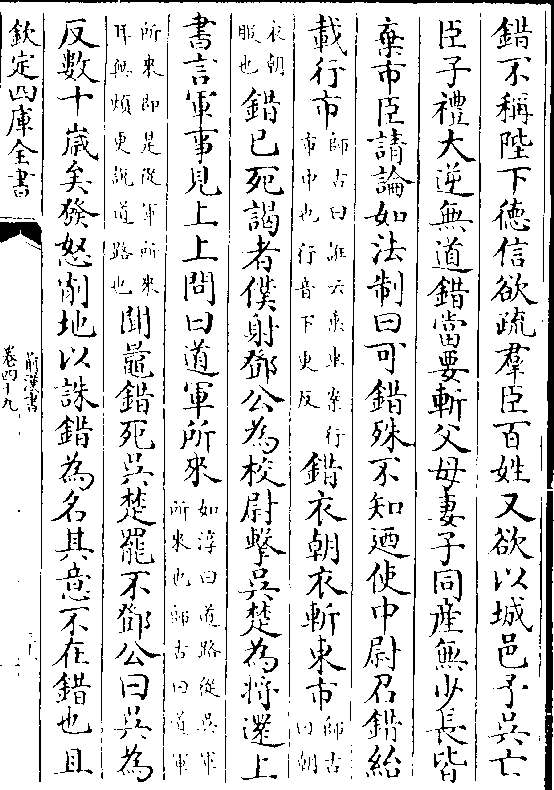 錯不稱陛下德信欲疏羣臣百姓又欲以城邑予吳亡
臣子禮大逆無道錯當要斬父母妻子同產無少長皆
棄市臣請論如法制曰可錯殊不知迺使中尉召錯紿
載行市師古曰誑云乘車案行市中也行音下更反錯衣朝衣斬東市師古曰朝
衣朝服也錯已死謁者僕射鄧公為校尉擊吳楚為將還上
書言軍事見上上問曰道軍所來如淳曰道路從吳軍所來也師古曰道軍
所來即是從軍所來耳無煩更說道路也聞鼂錯死吳楚罷不鄧公曰吳為
反數十歲矣發怒削地以誅錯為名其意不在錯也且
欽定四庫全書
前漢書
卷四十九